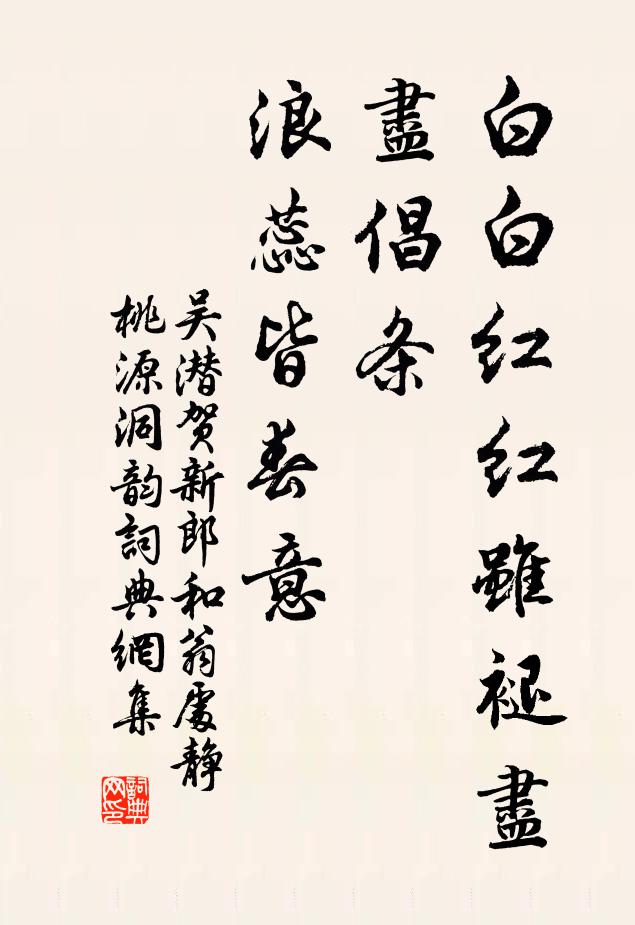 白白红红雖褪盡
盡倡条
浪蕊皆春意
吴潜贺新郎和翁處静
桃源洞韵詞典網集
詞典网印